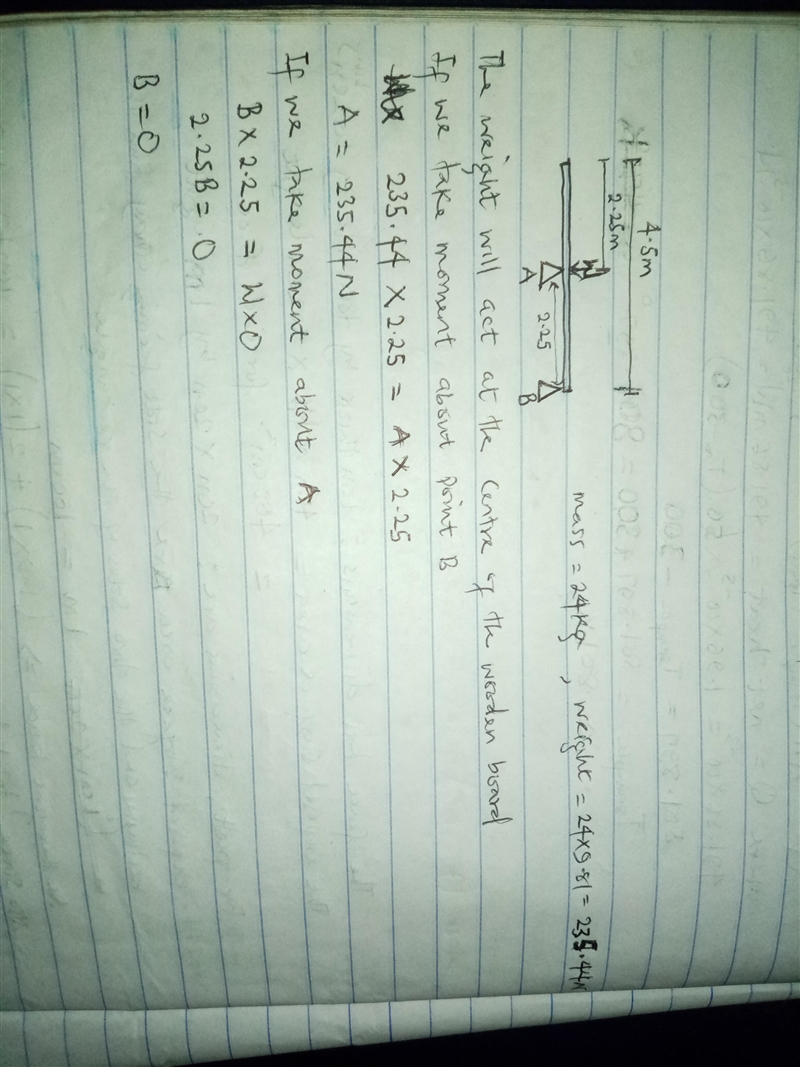 4.5m
2.25m
W
2.25
A
B
mass = 24kg , weight = 24×9.81 = 235.44N
The weight will act at the centre of the wooden board
If we take moment about point B
235.44 × 2.25 = A × 2.25
A = 235.44N
If we take moment about A
B × 2.25 = W×0
2.25B = 0
B = 0